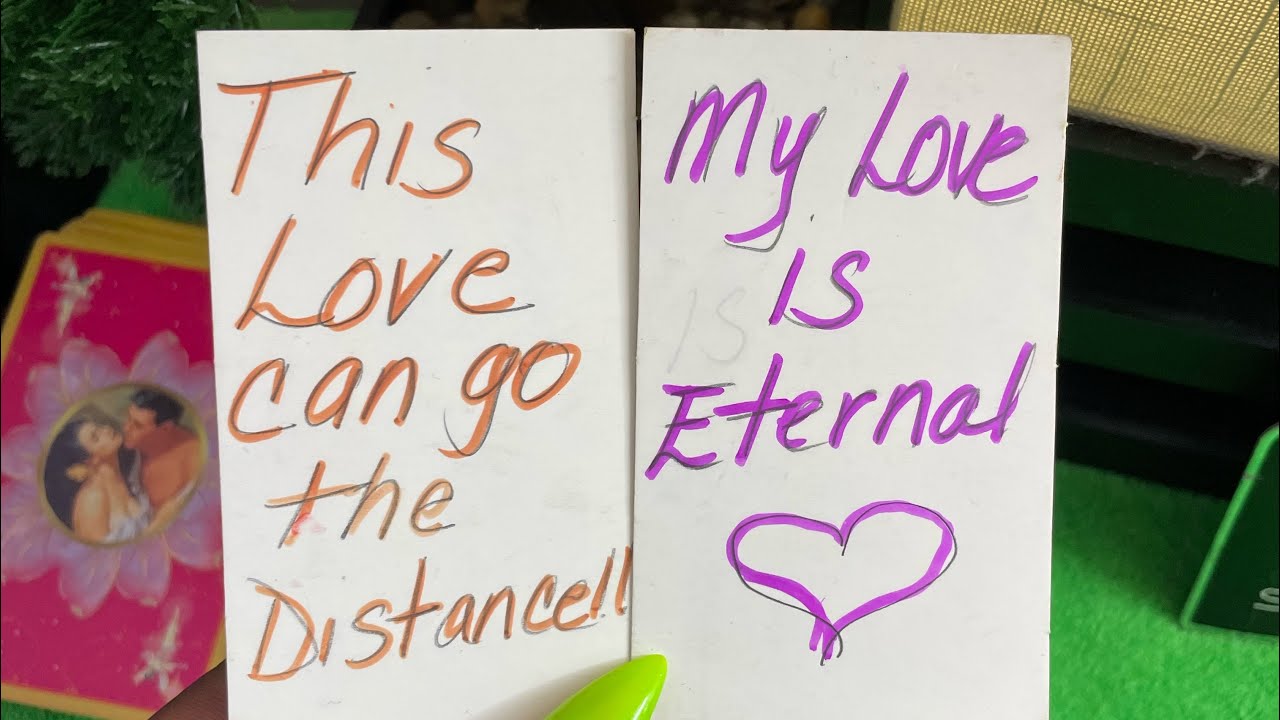 This
Love
can go
the
Distance!!
My Love
is
is
Eternal